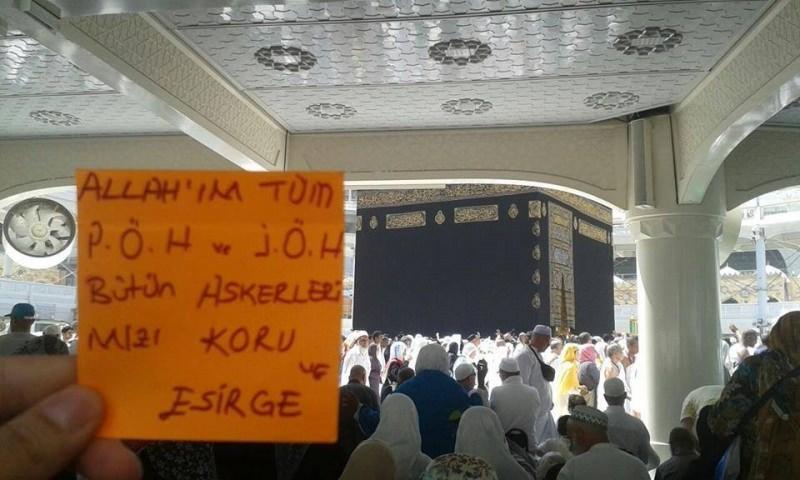 ALLAH'IM TÜM
P.Ö.H ve J.Ö.H
BÜTÜN ASKERLERİ
MİZİ KORU
ve
ESİRGE